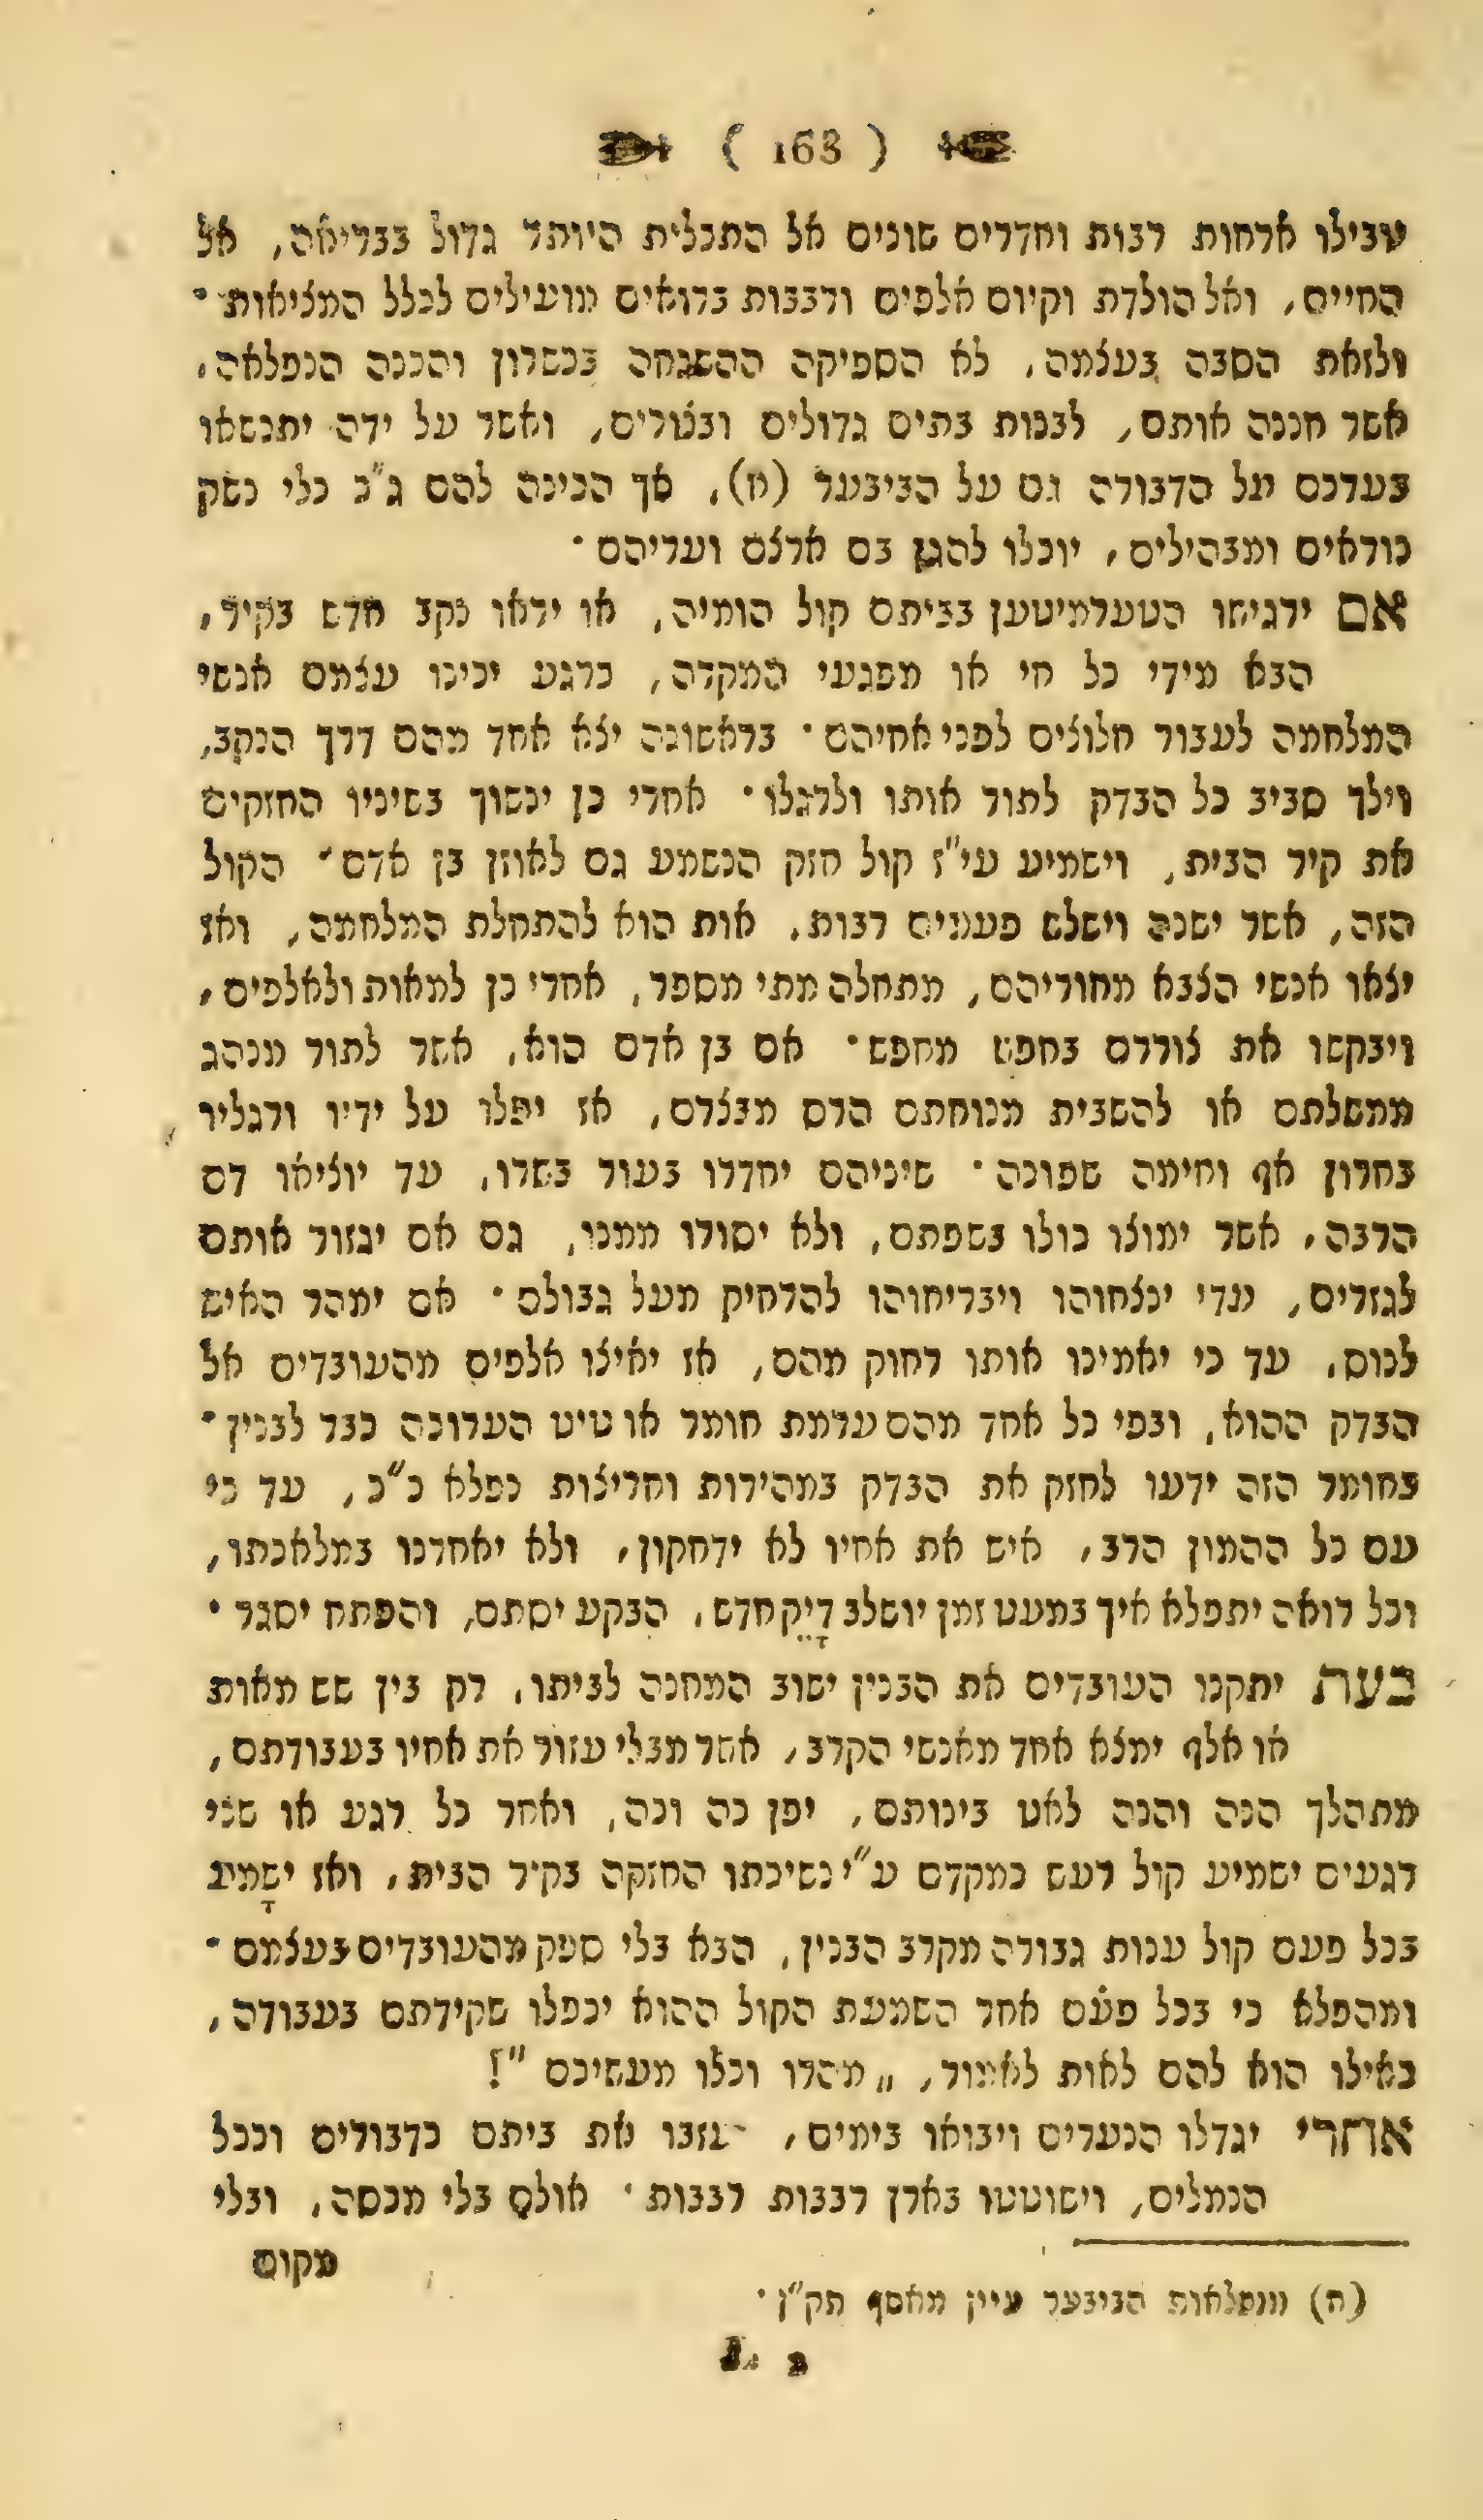 ( 163 )
שבילו ארחות רבות וחדרים שונים אל התכלית היותר גדול בבריאה, אל
החיים, ואל הולדת וקיום אלפים ורבבות ברואים מועילים לכלל המציאות·
ולזאת הסבה בעצמה, לא הספיקה ההשגחה בכשרון והכנה הנפלאה,
אשר חננה אותם, לבנות בתים גדולים ובצורים, ואשר על ידה יתנשאו
בערכם על הדבורה וגם על הביבער (ח), אך הכינה להם ג"כ כלי נשק
נוראים ומבהילים, יוכלו להגן בם ארצם ועריהם·
אם ירגישו הטערמיטען בביתם קול הומיה, או יראו נקב חדש בקיר,
הבא מידי כל חי או מפגעי המקרה, כרגע יכינו עצמם אנשי
המלחמה לעבור חלוצים לפני אחיהם· בראשונה יצא אחד מהם דרך הנקב,
וילך סביב כל הבדק לתור אותו ולרגלו· אחרי כן ינשוך בשיניו החזקים
את קיר הבית, וישמיע עי"ז קול חזק הנשמע גם לאוזן בן אדם· הקול
הזה, אשר ישנה וישלש פעמים רבות, אות הוא להתחלת המלחמה, ואז
יצאו אנשי הצבא מחוריהם, מתחלה מתי מספר, אחרי כן למאות ולאלפים,
ויבקשו את צוררם בחפש מחפש· אם בן אדם הוא, אשר לתור מנהג
ממשלתם או להשבית מנוחתם הרס מבצרם, אז יפלו על ידיו ורגליו
בחרון אף וחימה שפוכה· שיניהם יחדרו בעור בשרו, עד יוציאו דם
הרבה, אשר ימוצו כולו בשפתם, ולא יסורו ממנו, גם אם יגזור אותם
לגזרים, עדי ינצחוהו ויבריחוהו להרחיק מעל גבולם· אם ימהר האיש
לנוס, עד כי יאמינו אותו רחוק מהם, אז יאיצו אלפים מהעובדים אל
הבדק ההוא, ובפי כל אחד מהם ערמת חומר או טיט הערוכה כבר לבנין·
בחומר הזה ידעו לחזק את הבדק במהירות וחריצות נפלא כ"כ, עד כי
עם כל ההמון הרב, איש את אחיו לא ידחקון, ולא יאחרנו במלאכתו,
וכל רואה יתפלא איך במעט זמן יושלב דָיֵק חדש, הבקע יסתם, והפתח יסגר·
בעת יתקנו העובדים את הבנין ישוב המחנה לביתו, רק בין שש מאות
או אלף ימצא אחד מאנשי הקרב, אשר מבלי עזור את אחיו בעבודתם,
מתהלך הנה והנה לאט בינותם, יפן כה וכה, ואחר כל רגע או שני
רגעים ישמיע קול רעש כמקדם ע"י נשיכתו החזקה בקיר הבית, ואז ישָמיע
בכל פעם קול ענות גבורה מקרב הבנין, הבא בלי ספק מהעובדים בעצמם·
ומהפלא כי בכל פעם אחר השמעת הקול ההוא יכפלו שקידתם בעבודה,
כאילו הוא להם לאות לאמור, „מהרו וכלו מעשיכם"!
אחרי יגדלו הנערים ויבואו בימים, יעזבו את ביתם כדבורים וככל
הנמלים, וישוטטו בארץ רבבות רבבות· אולם בלי מכסה, ובלי
מקום
(ח) מנפלאות הביבער עיין מאסף תק"ן·
L 2